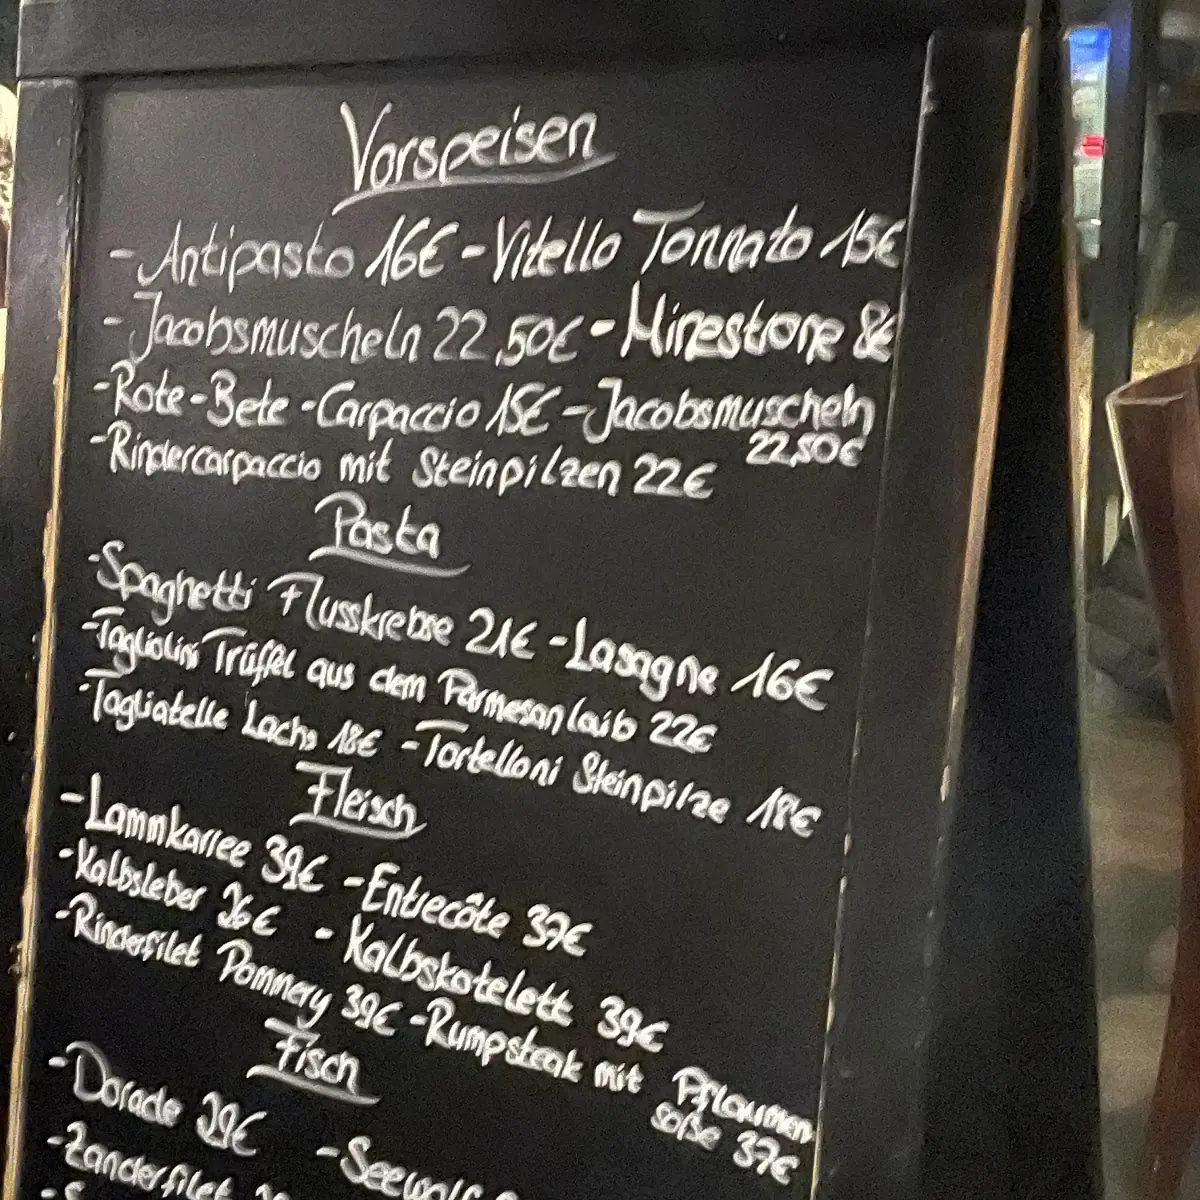 Vorspeisen
- Antipasto 16€ - Vitello Tonnato 15€
- Jacobsmuscheln 22,50€ - Minestrone 8€
- Rote-Bete-Carpaccio 15€ - Jacobsmuscheln
22,50€
- Rindercarpaccio mit Steinpilzen 22€
Pasta
- Spaghetti Flusskrebse 21€ - Lasagne 16€
- Tagliolini Trüffel aus dem Parmesanlaib 22€
- Tagliatelle Lachs 18€ - Tortelloni Steinpilze 18€
Fleisch
- Lammkarree 39€ - Entrecôte 37€
- Kalbsleber 26€ - Kalbskotelett 39€
- Rinderfilet Pommery 39€ - Rumpsteak mit Pflaumen
soße 37€
Fisch
- Dorade 29€ - Seewolf
- Zanderfilet